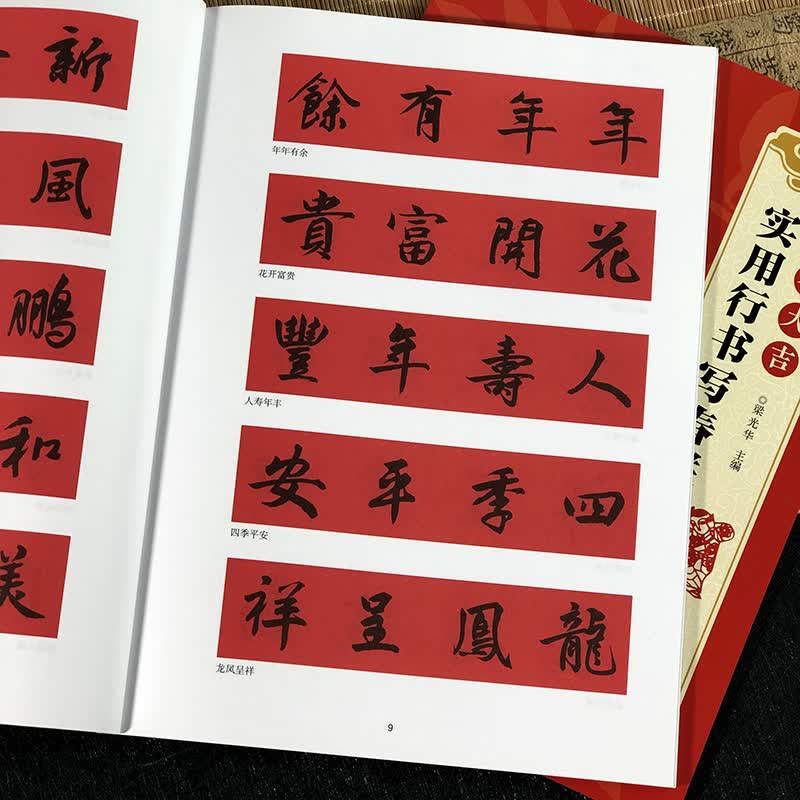 新
風
鵬
和
美
餘有年年
年年有余
貴富開花
花开富贵
豐年壽人
人寿年丰
安平季四
四季平安
祥呈鳳龍
龙凤呈祥
9
大吉
实用行书写春
◎梁光华 主编